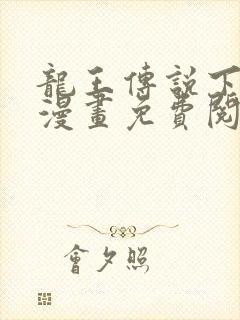 龍王傳說下
漫畫免費閱
會夕照